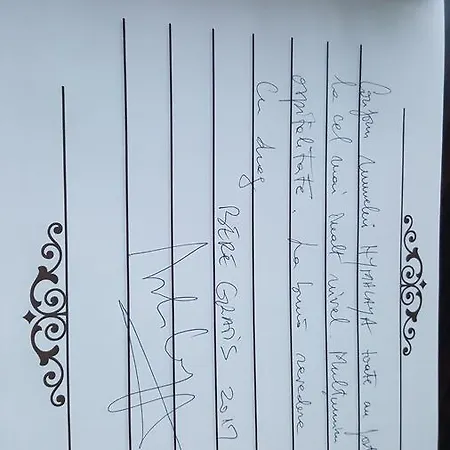 Conform numelui HYMALAYA toate au fost
la cel mai înalt nivel. Mulțumim
ospitalitate. La bună revedere
Cu drag
BERE GRATIS 2017